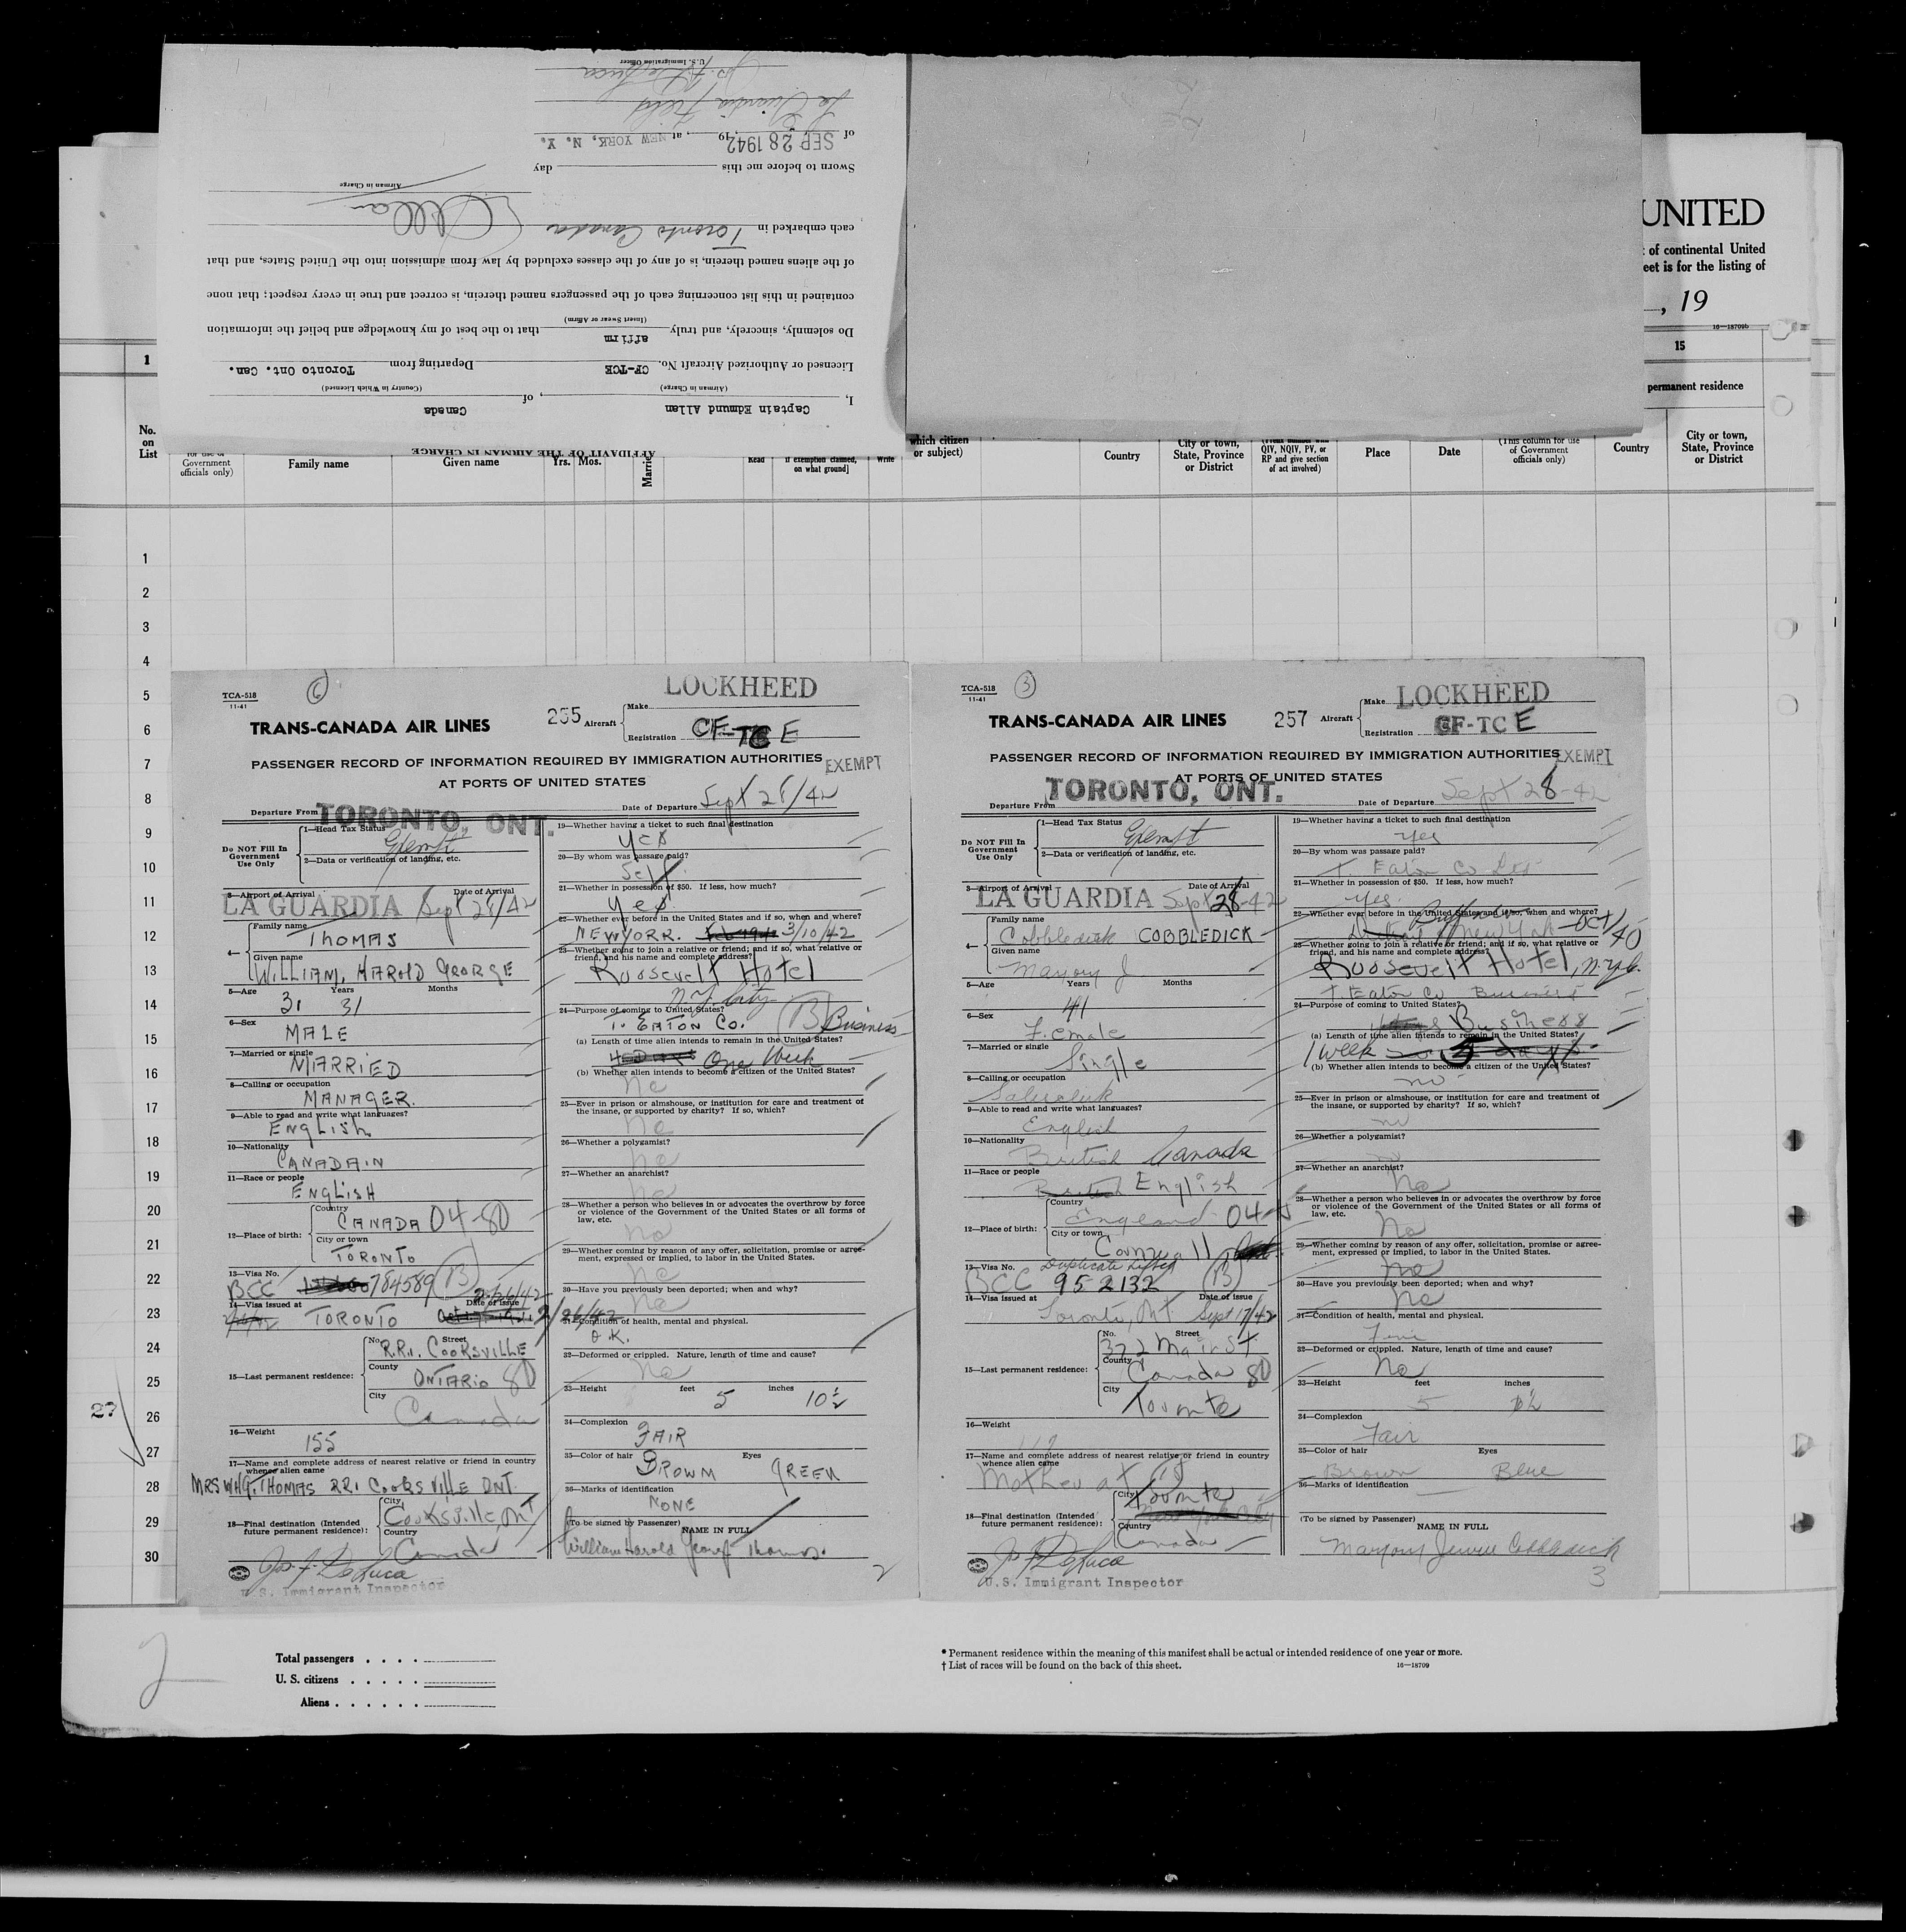 U.S. Immigration Officer
La Guardia Field
of SEP 28 1942, 19, at NEW YORK, N. Y.
Sworn to before me this day
Airman in Charge
each embarked in Toronto Canada
of the aliens named therein, is of any of the classes excluded by law from admission into the United States, and that
contained in this list concerning each of the passengers named therein, is correct and true in every respect; that none
(Insert Swear or Affirm)
Do solemnly, sincerely, and truly affirm that to the best of my knowledge and belief the information
Licensed or Authorized Aircraft No. CF-TCE Departing from Toronto Ont. Can.
(Airman in Charge) (Country in Which Licensed)
I, Captain Edmund Allan, of Canada
AFFIDAVIT OF THE AIRMAN IN CHARGE
UNITED
of continental United
eet is for the listing of
, 19
16—18709b
1
15
permanent residence
No. on List
Government officials only)
Family name
Given name
Yrs. Mos.
Read
if exemption claimed, on what ground]
Write
which citizen or subject)
Country
City or town, State, Province or District
QIV, NQIV, PV, or RP and give section of act involved)
Place
Date
(This column for use of Government officials only)
Country
City or town, State, Province or District
1
2
3
4
5
6
7
8
9
10
11
12
13
14
15
16
17
18
19
20
21
22
23
24
25
26
27
28
29
30
27
TCA-518
11-41
6
LOCKHEED
TRANS-CANADA AIR LINES
255 Aircraft
Make
Registration CF-TCE
PASSENGER RECORD OF INFORMATION REQUIRED BY IMMIGRATION AUTHORITIES
EXEMPT
AT PORTS OF UNITED STATES
Departure From TORONTO, ONT.
Date of Departure Sept 28/42
Do NOT Fill In Government Use Only
1—Head Tax Status
Exempt
2—Data or verification of landing, etc.
3—Airport of Arrival
Date of Arrival
LA GUARDIA Sept 28/42
4—
Family name
THOMAS
Given name
WILLIAM, HAROLD GEORGE
5—Age Years Months
31 31
6—Sex
MALE
7—Married or single
MARRIED
8—Calling or occupation
MANAGER.
9—Able to read and write what languages?
ENGLISH
10—Nationality
CANADAIN
11—Race or people
ENGLISH
12—Place of birth:
Country
CANADA 04-80
City or town
TORONTO
13—Visa No.
BCC 784589 (B) 2/26/42
14—Visa issued at
Date of issue
TORONTO 2/26/42
15—Last permanent residence:
No. Street
R.R.1. COOKSVILLE
County
ONTARIO 80
City
Canada
16—Weight
155
17—Name and complete address of nearest relative or friend in country whence alien came
MRS W.H.G. THOMAS RR1 COOKSVILLE ONT.
18—Final destination (Intended future permanent residence):
City
Cooksville, Ont
Country
Canada
Jos F DeLuca
U.S. Immigrant Inspector
19—Whether having a ticket to such final destination
Yes
20—By whom was passage paid?
Self
21—Whether in possession of $50. If less, how much?
Yes
22—Whether ever before in the United States and if so, when and where?
NEW YORK. 3/10/42
23—Whether going to join a relative or friend; and if so, what relative or friend, and his name and complete address?
Roosevelt Hotel
N.Y. City
24—Purpose of coming to United States?
T. EATON CO. (B) Business
(a) Length of time alien intends to remain in the United States?
One Week
(b) Whether alien intends to become a citizen of the United States?
No
25—Ever in prison or almshouse, or institution for care and treatment of the insane, or supported by charity? If so, which?
No
26—Whether a polygamist?
No
27—Whether an anarchist?
No
28—Whether a person who believes in or advocates the overthrow by force or violence of the Government of the United States or all forms of law, etc.
No
29—Whether coming by reason of any offer, solicitation, promise or agreement, expressed or implied, to labor in the United States.
No
30—Have you previously been deported; when and why?
No
31—Condition of health, mental and physical.
O.K.
32—Deformed or crippled. Nature, length of time and cause?
No
33—Height feet inches
5 10½
34—Complexion
FAIR
35—Color of hair Eyes
BROWN GREEN
36—Marks of identification
NONE
(To be signed by Passenger)
NAME IN FULL
William Harold George Thomas.
2
TCA-518
11-41
3
LOCKHEED
TRANS-CANADA AIR LINES
257 Aircraft
Make
Registration CF-TCE
PASSENGER RECORD OF INFORMATION REQUIRED BY IMMIGRATION AUTHORITIES
EXEMPT
AT PORTS OF UNITED STATES
Departure From TORONTO, ONT.
Date of Departure Sept 28-42
Do NOT Fill In Government Use Only
1—Head Tax Status
Exempt
2—Data or verification of landing, etc.
3—Airport of Arrival
Date of Arrival
LA GUARDIA Sept 28-42
4—
Family name
Cobbledick COBBLEDICK
Given name
Marjory J
5—Age Years Months
41
6—Sex
Female
7—Married or single
Single
8—Calling or occupation
9—Able to read and write what languages?
English
10—Nationality
British Canada
11—Race or people
British English
12—Place of birth:
Country
England 04-
City or town
13—Visa No.
BCC 952132 (B)
14—Visa issued at
Date of issue
Toronto, Ont Sept 17/42
15—Last permanent residence:
No. Street
372 Main St
County
Canada 80
City
Toronto
16—Weight
17—Name and complete address of nearest relative or friend in country whence alien came
Mother at 15
18—Final destination (Intended future permanent residence):
City
Toronto
Country
Canada
Jos F DeLuca
U.S. Immigrant Inspector
19—Whether having a ticket to such final destination
Yes
20—By whom was passage paid?
T. Eaton Co Ltd
21—Whether in possession of $50. If less, how much?
Yes.
22—Whether ever before in the United States and if so, when and where?
Buffalo New York - Oct/40
23—Whether going to join a relative or friend; and if so, what relative or friend, and his name and complete address?
Roosevelt Hotel, N.Y.C.
T. Eaton Co Business
24—Purpose of coming to United States?
Business
(a) Length of time alien intends to remain in the United States?
1 week 5 days
(b) Whether alien intends to become a citizen of the United States?
no
25—Ever in prison or almshouse, or institution for care and treatment of the insane, or supported by charity? If so, which?
no
26—Whether a polygamist?
27—Whether an anarchist?
No
28—Whether a person who believes in or advocates the overthrow by force or violence of the Government of the United States or all forms of law, etc.
No
29—Whether coming by reason of any offer, solicitation, promise or agreement, expressed or implied, to labor in the United States.
No
30—Have you previously been deported; when and why?
No
31—Condition of health, mental and physical.
Fine
32—Deformed or crippled. Nature, length of time and cause?
No
33—Height feet inches
5
34—Complexion
Fair
35—Color of hair Eyes
Brown Blue
36—Marks of identification
(To be signed by Passenger)
NAME IN FULL
Cobbledick
3
2
Total passengers . . . .
U. S. citizens . . . . .
Aliens . . . . . .
* Permanent residence within the meaning of this manifest shall be actual or intended residence of one year or more.
† List of races will be found on the back of this sheet.
16—18709